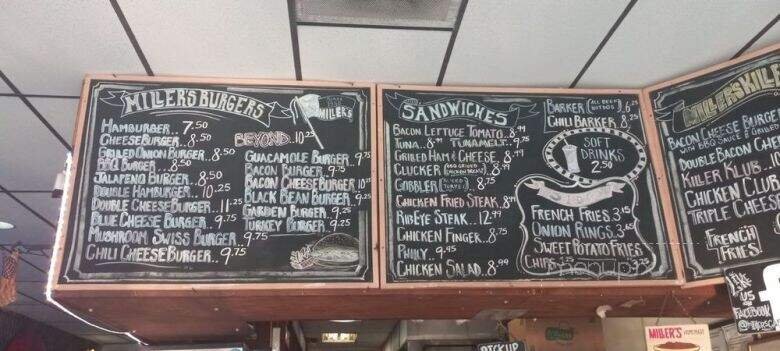 MILLER'S BURGERS
MILLER'S
HAMBURGER.. 7.50
CHEESEBURGER.. 8.50
GRILLED ONION BURGER.. 8.50
BBQ BURGER.. 8.50
JALAPENO BURGER.. 8.50
DOUBLE HAMBURGER.. 10.25
DOUBLE CHEESEBURGER.. 11.25
BLUE CHEESE BURGER.. 9.75
MUSHROOM SWISS BURGER.. 9.75
CHILI CHEESEBURGER.. 9.75
BEYOND.. 10.25
GUACAMOLE BURGER.. 9.75
BACON BURGER.. 9.75
BACON CHEESEBURGER 10.25
BLACK BEAN BURGER.. 9.25
GARDEN BURGER.. 9.25
TURKEY BURGER.. 9.25
SANDWICHES
BACON LETTUCE TOMATO.. 8.99
TUNA.. 8.99 TUNA MELT.. 9.75
GRILLED HAM & CHEESE.. 8.99
CLUCKER (BBQ GRILLED CHICKEN BREAST) 8.75
GOBBLER.. 8.75
CHICKEN FRIED STEAK.. 8.99
RIBEYE STEAK.. 12.99
CHICKEN FINGER.. 8.75
PHILLY.. 9.45
CHICKEN SALAD.. 8.99
BARKER (ALL BEEF HOTDOG) 6.25
CHILI BARKER.. 8.25
SOFT
DRINKS
2.50
FRENCH FRIES.. 3.15
ONION RINGS.. 3.65
SWEET POTATO FRIES
CHIPS
MILLER'S KILLER
BACON CHEESE BURGE
WITH BBQ SAUCE & GRILLED
DOUBLE BACON CH
KILLER KLUB..
CHICKEN CLUB
TRIPLE CHEESE
FRENCH
FRIES
LIKE
US
ON
FACEBOOK
MILLER'S HOMEMADE
PICKUP